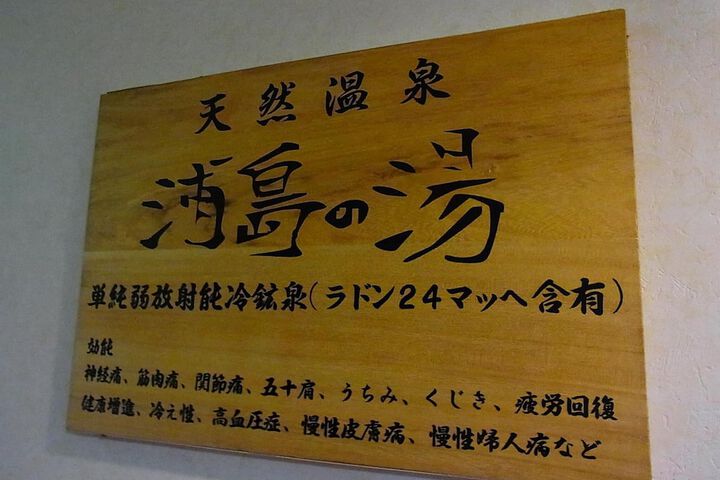 天然温泉
浦島の湯
単純弱放射能冷鉱泉(ラドン24マッヘ含有)
効能
神経痛、筋肉痛、関節痛、五十肩、うちみ、くじき、疲労回復
健康増進、冷え性、高血圧症、慢性皮膚病、慢性婦人病など